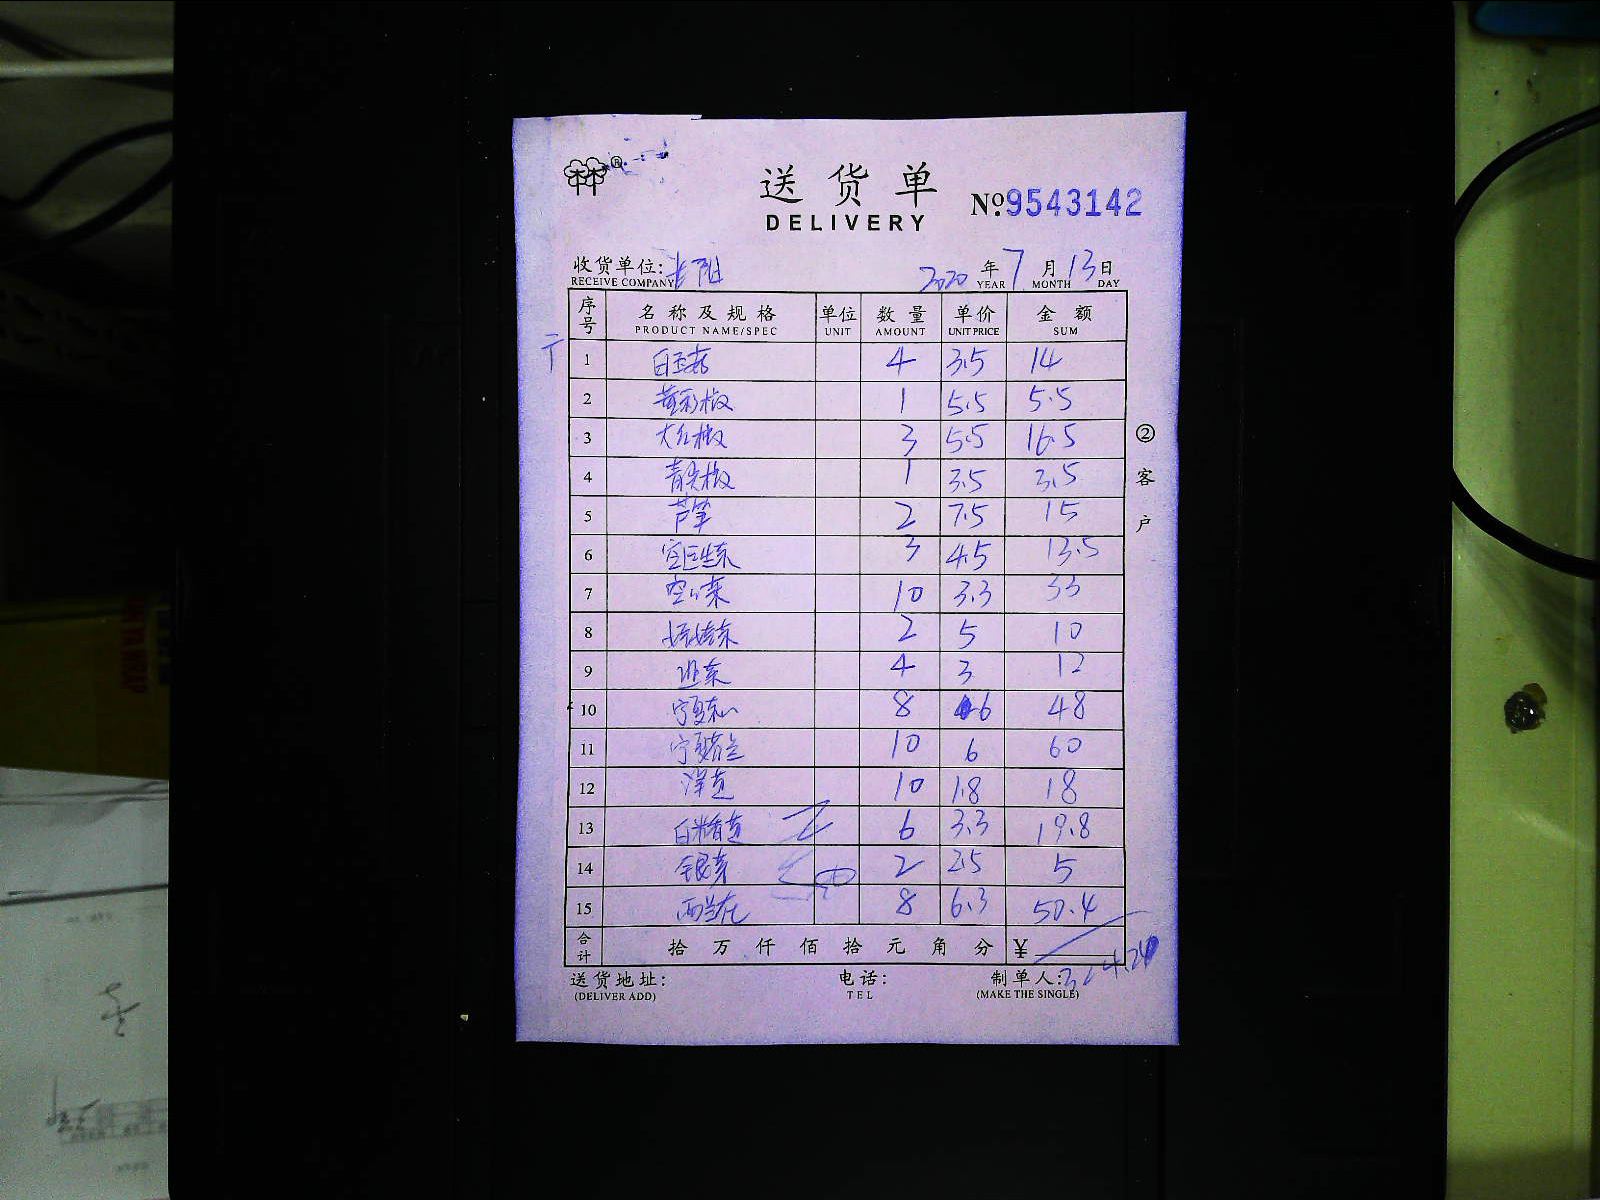 送货单
DELIVERY
No.9543142
收货单位:
RECEIVE COMPANY
2020 年 7 月 13 日
YEAR MONTH DAY
序号 名称及规格 单位 数量 单价 金额
PRODUCT NAME/SPEC UNIT AMOUNT UNIT PRICE SUM
1 白玉菇 4 3.5 14
2 黄彩椒 1 5.5 5.5
3 大红椒 3 5.5 16.5
4 青尖椒 1 3.5 3.5
5 芦笋 2 7.5 15
6 3 4.5 13.5
7 空心菜 10 3.3 33
8 娃娃菜 2 5 10
9 4 3 12
10 宁夏菜心 8 6 48
11 宁夏芥兰 10 6 60
12 洋芋 10 1.8 18
13 6 3.3 19.8
14 银芽 2 2.5 5
15 西兰花 8 6.3 50.4
合计 拾 万 仟 佰 拾 元 角 分 ¥
324.2
送货地址: 电话: 制单人:
(DELIVER ADD) TEL (MAKE THE SINGLE)
② 客户